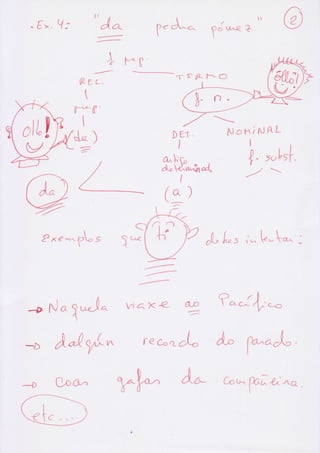 .Ex. 4: "da pedra pómez" 2
f. mp.
REL. TERMO
ollo!
mp.
f. n.
ollo!
(de)
DET. NOMINAL
artigo determinado
f. subst.
da
(a)
Exemplos que ti debes intentar:
→ Naquela viaxe ao Pacífico
→ dalgún recordo do pasado.
→ Coas gafas da compañeira.
etc...